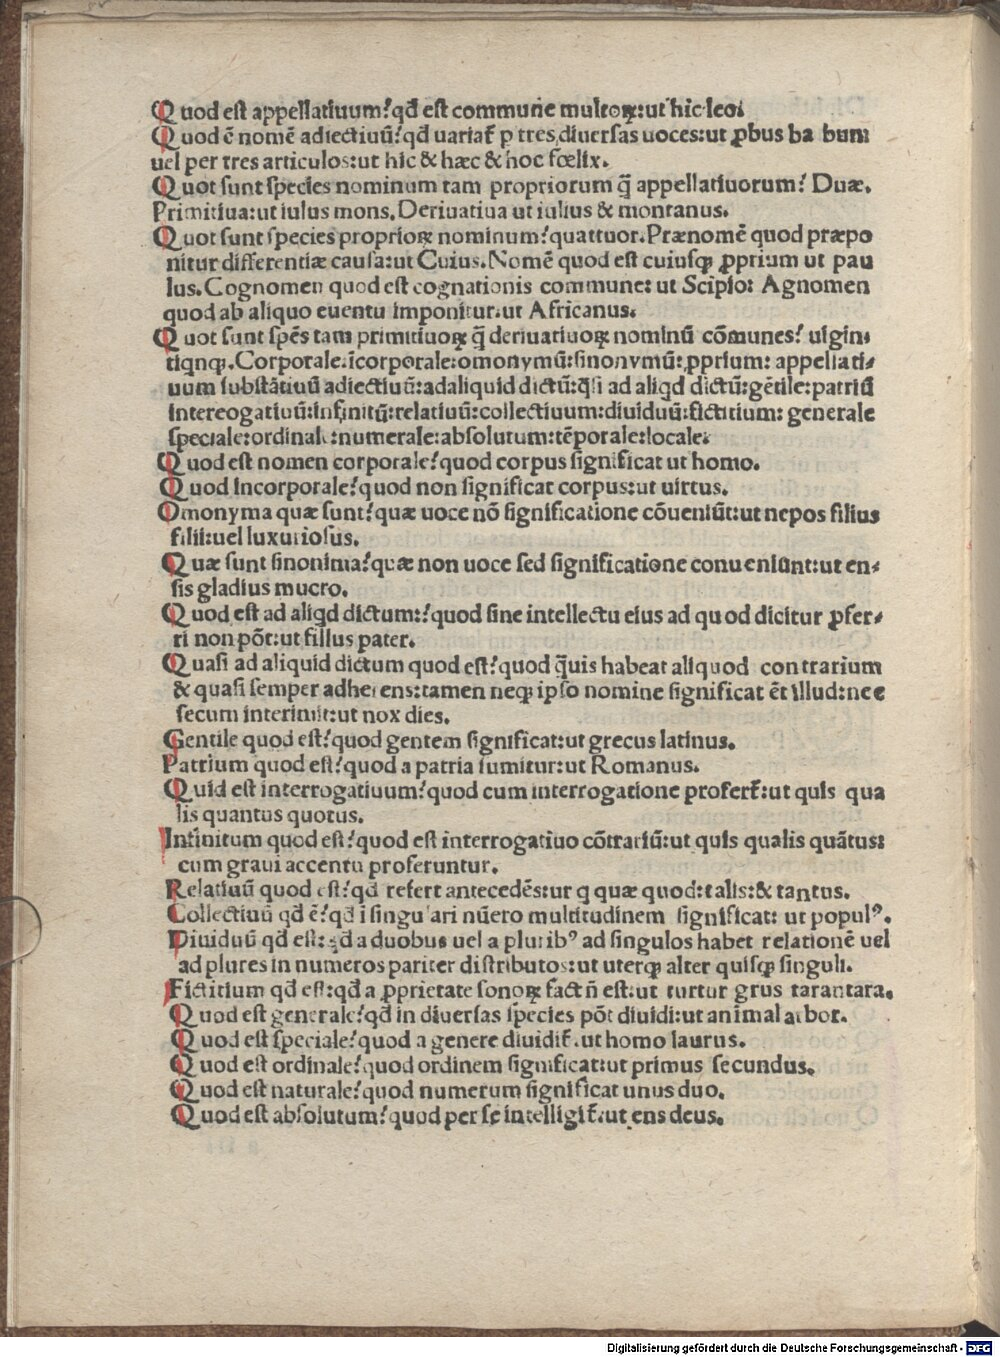 Quod est appellatiuum? qđ est commune multoꝝ: ut hic leo.
Quod ē nomē adiectiuū? qđ uariat̉ p tres diuersas uoces: ut ꝓbus ba bum
uel per tres articulos: ut hic & hæc & hoc fœlix.
Quot sunt species nominum tam propriorum q̄ appellatiuorum? Duæ.
Primitiua: ut iulus mons. Deriuatiua ut iulius & montanus.
Quot sunt species proprioꝝ nominum? quattuor. Prænomē quod præpo
nitur differentiæ causa: ut Cuius. Nomē quod est cuiusqꝫ ꝓprium ut pau
lus. Cognomen quod est cognationis commune: ut Scipio: Agnomen
quod ab aliquo euentu imponitur. ut Africanus.
Quot sunt spēs tam primitiuoꝝ q̄ deriuatiuoꝝ nominū cōmunes? uigin⸗
tiqnqꝫ. Corporale. īcorporale: omonymū: sinonymū: ꝓprium: appellati⸗
uum substātiuū adiectiuū: adaliquid dictū: q̄si ad aliqd dictū: gētile: patriū
intereogatiuū: infinitū: relatiuū: collectiuum: diuiduū: fictitium: generale
speciale: ordinale: numerale: absolutum: tēporale: locale.
Quod est nomen corporale? quod corpus significat ut homo.
Quod incorporale? quod non significat corpus: ut uirtus.
Omonyma quæ sunt? quæ uoce nō significatione cōueniūt: ut nepos filius
filii: uel luxuriosus.
Quæ sunt sinonima? quæ non uoce sed significatione conueniūnt: ut en⸗
sis gladius mucro.
Quod est ad aliqd dictum? quod sine intellectu eius ad quod dicitur ꝓfer⸗
ri non pōt: ut filius pater.
Quasi ad aliquid dictum quod est? quod q̄uis habeat aliquod contrarium
& quasi semper adherens: tamen neqꝫ ipso nomine significat ēt illud: nec
secum interimit: ut nox dies.
Gentile quod est? quod gentem significat: ut grecus latinus.
Patrium quod est? quod a patria sumitur: ut Romanus.
Quid est interrogatiuum? quod cum interrogatione profert̉: ut quis qua
lis quantus quotus.
Infinitum quod est? quod est interrogatiuo cōtrariū: ut quis qualis quātus:
cum graui accentu proferuntur.
Relatiuū quod est? qđ refert antecedēs: ut q quæ quod: talis: & tantus.
Collectiuū qđ ē? qđ i singulari nūero multitudinem significat: ut populꝰ.
Diuiduū qđ est: qđ a duobus uel a pluribꝰ ad singulos habet relationē uel
ad plures in numeros pariter distributos: ut uterqꝫ alter quisqꝫ singuli.
Fictitium qđ est: qđ a ꝓprietate sonoꝝ factn̄ est: ut turtur grus tarantara.
Quod est generale? qđ in diuersas species pōt diuidi: ut animal arbor.
Quod est speciale? quod a genere diuidit̉. ut homo laurus.
Quod est ordinale? quod ordinem significat: ut primus secundus.
Quod est naturale? quod numerum significat unus duo.
Quod est absolutum? quod per se intelligit̉: ut ens deus.
Digitalisierung gefördert durch die Deutsche Forschungsgemeinschaft - DFG